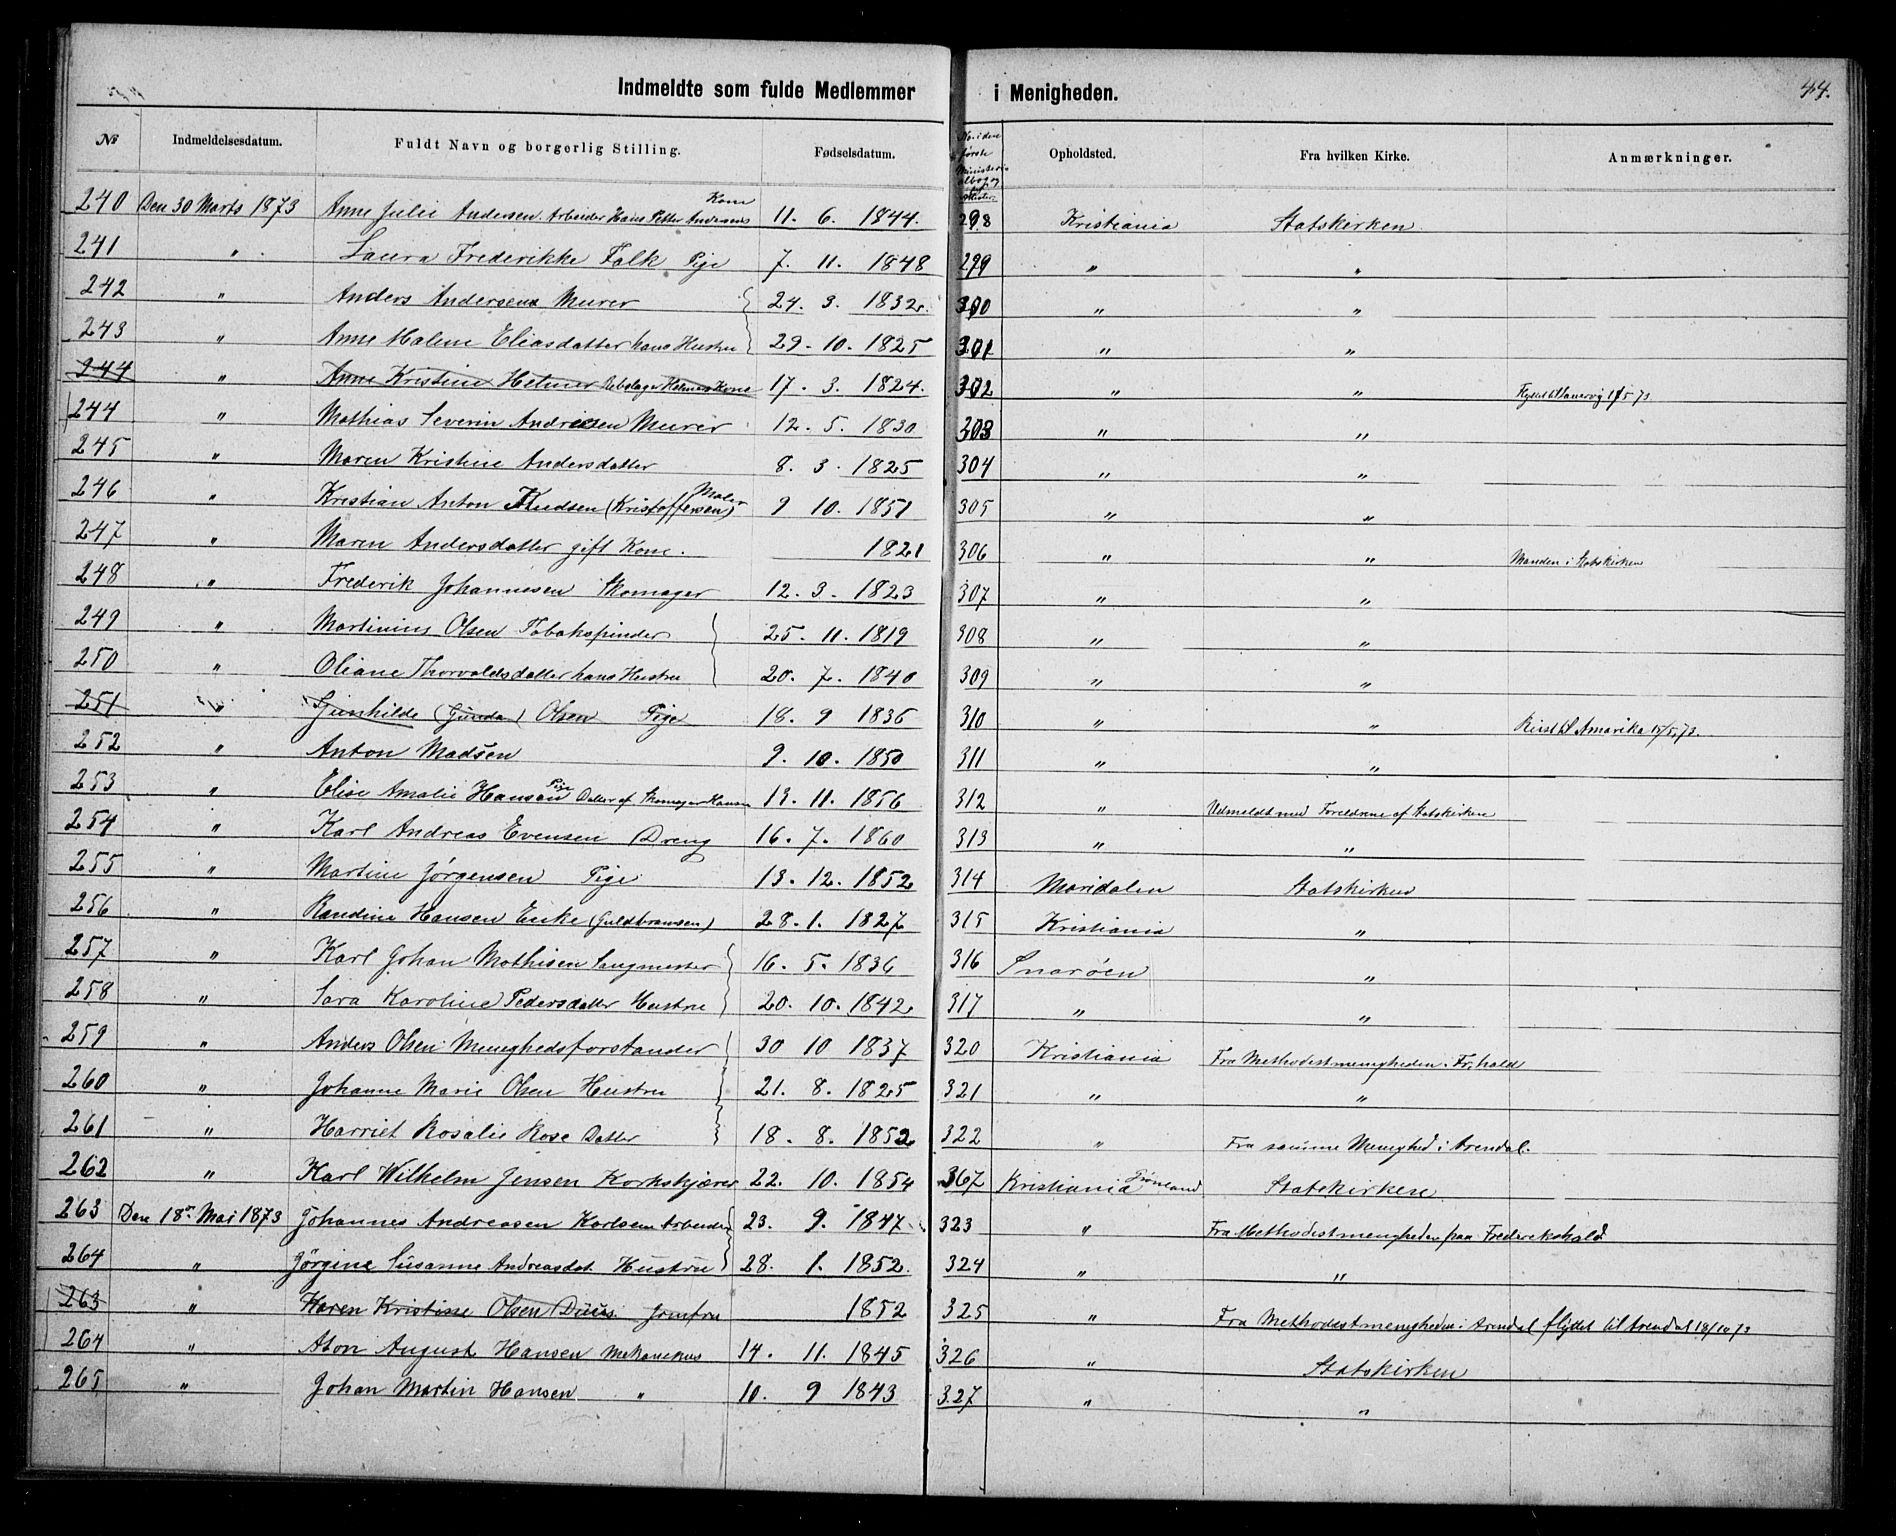 Indmeldte som fulde Medlemmer i Menigheden. 44.
№ Indmeldelsesdatum. Fuldt Navn og borgerlig Stilling. Fødselsdatum. No. i den første Ministerialbog Opholdsted. Fra hvilken Kirke. Anmærkninger.
240 Den 30 Marts 1873 Anne Julie Andersen Arbeider Hans Petter Andersens Kone 11. 6. 1844. 298 Kristiania Statskirken
241 " Laura Frederikke Falk Pige 7. 11. 1848 299 " "
242 " Anders Andersen Murer 24. 3. 1832. 300 " "
243 " Anne Malene Eliasdatter hans Hustru 29. 10. 1825 301 " "
244 " Anne Kristine Helmer Rebslager Helmers Kone 17. 3. 1824. 302 " "
244 " Mathias Severin Andresen Murer 12. 5. 1830 303 " "
245 " Maren Kristine Andersdatter 8. 3. 1825 304 " "
246 " Kristian Anton Knudsen (Kristoffersen) Maler 9 10. 1851 305 " "
247 " Maren Andersdatter gift Kone. 1821 306 " " Manden i Statskirken
248 " Frederik Johannesen Skomager 12. 3. 1823 307 " "
249 " Martinius Olsen Tobakspinder 25. 11. 1819 308 " "
250 " Oliane Thorvaldsdatter hans Hustru 20. 7. 1840 309 " "
251 " Gunhilde (Gunda) Olsen Pige 18. 9 1836 310 " " Reist til Amerika 15/5 73.
252 " Anton Madsen 9. 10. 1850 311 " "
253 " Elise Amalie Hansen Pige Datter af Skomager Hansen 13. 11. 1856 312 " Udmeldt med Foreldrene af Statskirken
254 " Karl Andreas Evensen Dreng 16. 7. 1860 313 " "
255 " Martine Jørgensen Pige 13. 12. 1852 314 Maridalen Statskirken
256 " Randine Hansen Enke (Guldbransen) 28. 1. 1827 315 Kristiania "
257 " Karl Johan Mathisen Saugmester 16. 5. 1836 316 Snarøen "
258 " Sara Karoline Pedersdatter Hustru 20. 10. 1842 317 " "
259 " Anders Olsen Menighedsforstander 30 10 1837 320 Kristiania Fra Methodistmenigheden i Fr.hald
260 " Johanne Marie Olsen Hustru 21. 8. 1825 321 " "
261 " Harriet Rosalie Rose Datter 18. 8. 1852 322 " Fra samme Menighed i Arendal.
262 " Karl Wilhelm Jensen Korkskjærer 22. 10. 1854 367 Kristiania Grønland Statskirken
263 Den 18de Mai 1873 Johannes Andreasen Karlsen Arbeider 23. 9. 1847 323 " Fra Methodistmenigheden paa Frederikshald
264 " Jørgine Susanne Andreasdat. Hustru 28. 1. 1852. 324 " "
263 " Karen Kristine Olsen Duus. Jomfru 1852 325 " Fra Methodistmenigheden i Arendal flyttet til Arendal 18/10 73
264 " Aton August Hansen Mekanikus 14. 11. 1845 326 " Statskirken
265 " Johan Martin Hansen " 10. 9 1843 327 " "